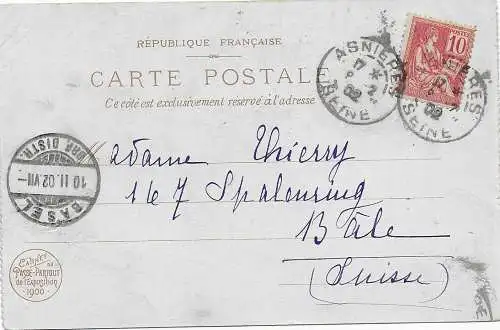 RÉPUBLIQUE FRANÇAISE
CARTE POSTALE
Ce côté est exclusivement réservé à l'adresse
10
POSTE
ASNIERES
17
2
02
SEINE
ASNIERES
02
SEINE
BASEL
10 II 02 VII-
DISTR.
Madame Thierry
167 Spalenring
Bâle
(Suisse)
PASSE-PARTOUT
de l'Exposition
1900